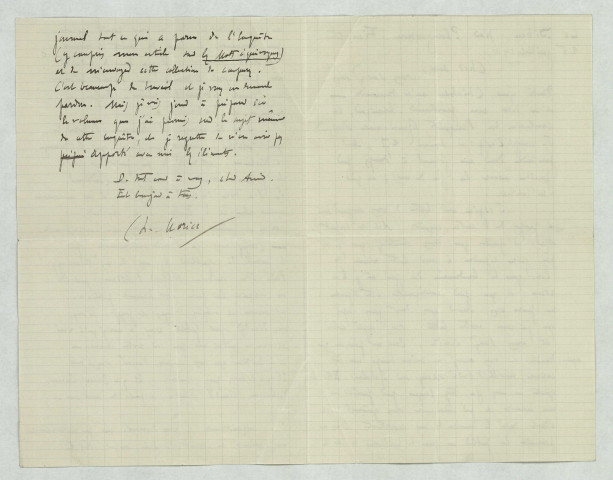 journal tout ce qui a paru de l'Enquête
(y compris mon article sur les Mots équivoques)
et de m'envoyer cette collection de coupures.
C'est beaucoup de travail et je vous en demande
pardon. Mais je vais jouer à préparer ici
le volume que j'ai promis sur le sujet même
de cette enquête, et je regrette de n'en avoir pas
apporté avec moi les éléments.
De tout cœur à vous, cher Ami.
Et bonjour à tous.
Ch. Morice